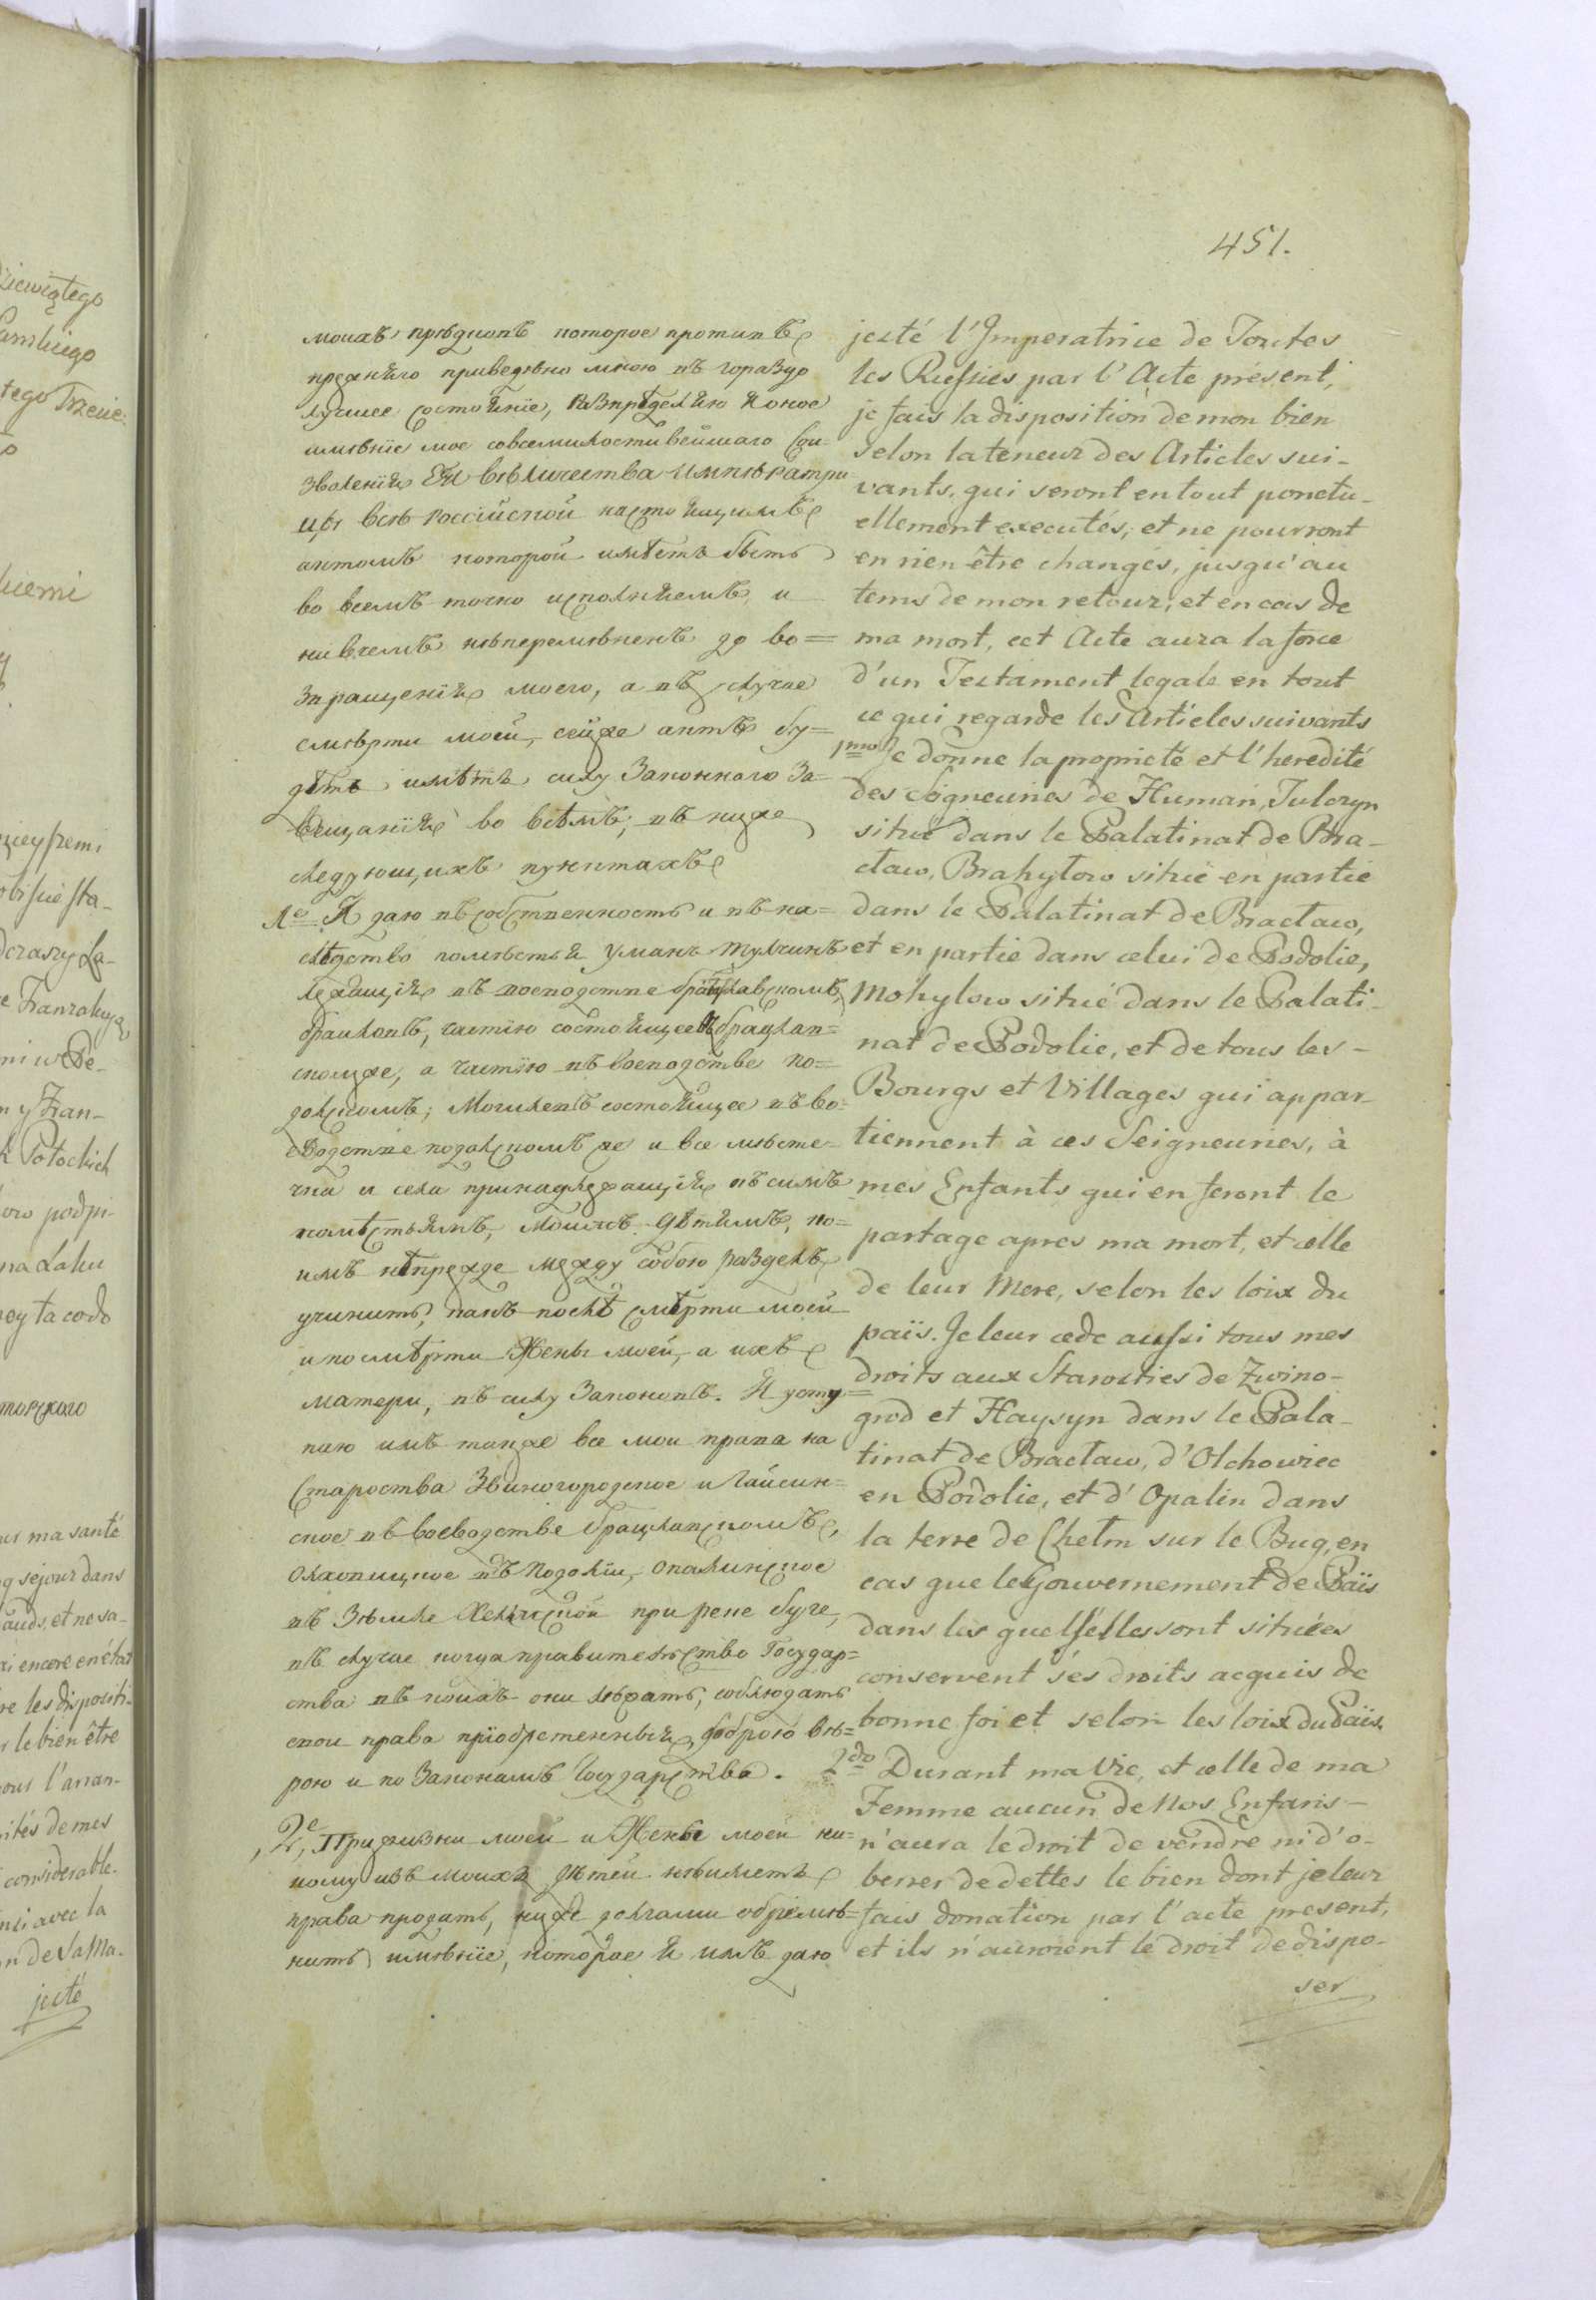 451.
моихъ предковъ которое противъ
прежняго приведено мною въ гораздо
лучшее состояние, разпределяю я оное
имѣніе мое совсемилостивейшаго сои=
зволенія Ея величества Императри
цы всея Россійской настоящимъ
актомъ которой имѣетъ быть
во всемъ точно исполняемъ, и
ни вчемъ непеременѣнъ до во=
звращенія моего, а въ случае
смерти моей, сей же актъ бу=
детъ имѣть силу законнаго за=
вещанія во всѣмъ, въ ниже
следующихъ пунктахъ
1e Я даю въ собственность и въ на=
следство поместья Умань Тульчинъ
лежащія въ воеводстве брацлавскомъ,
браиловъ, частію состоящее въ брацлав=
скомже, а частію въ воеводстве по=
дольскомъ; Могилевъ состоящее въ во=
еводстве подольскомъ же и все местеч=
ки и села принадлежащія къ симъ
поместьямъ, Моимъ Детямъ, ко=
имъ непрежде между собою разделъ
учинить, какъ после смерти моей
и по смерти Жены моей, а ихъ
матери, въ силу законовъ. Я усту=
паю имъ также все мои права на
староства Звиногородское и Гайсин=
ское въ воеводстве брацлавскомъ,
Олховицкое въ Подоліи, Опалинское
въ Земле Хельмской при реке буге,
въ случае когда правительство Государ=
ства въ коихъ они лежатъ, соблюдатъ
свои права пріобретенныя доброю ве=
рою и по законамъ Государства.
2e, При жизни моей и Жены моей ни=
кому изъ моихъ детей неимеетъ
права продать, ниже долгами обреме=
нить имѣніе, которое я имъ даю
jesté l'Imperatrice de Toutes
les Russies par l'Acte présent,
je fais la disposition de mon bien
selon la teneur des Articles sui-
vants, qui seront entout ponctu-
ellement executés, et ne pourront
en rien être changés, jusqu'au
tems de mon retour, et en cas de
ma mort, cet Acte aura la force
d'un Testament legale en tout
ce qui regarde les Articles suivants
1mo Je donne la propricté et l'heredité
des Seigneuries de Human, Tulczyn
situé dans le Palatinat de Bra-
claw, Brahyłow situé en partie
dans le Palatinat de Bracław,
et en partie dans celui de Podolie,
Mohylow situé dans le Palati-
nat de Podolie, et de tous les-
Bourgs et Villages qui appar-
tiennent à ces Seigneuries, à
mes Enfants qui en feront le
partage apres ma mort, et celle
de leur Mere, selon les loix du
païs. Je leur cede aussi tous mes
droits aux Starosties de Zwino-
grod et Haysyn dans le Pala-
tinat de Bracław, d'Olchowiec
en Podolie, et d'Opalin dans
la terre de Chełm sur le Bug, en
cas que le Gouvernement de Païs
dans les quels elles sont situées
conservent ses droits acquis de
bonne foi et selon les loix du Païs.
2do Durant ma Vie, et celle de ma
Femme aucun de Nos Enfans-
n'aura le droit de vendre ni d'o-
berrer de dettes le bien dont je leur
fais donation par l'acte present,
et ils n'auroient le droit de dispo-
ser